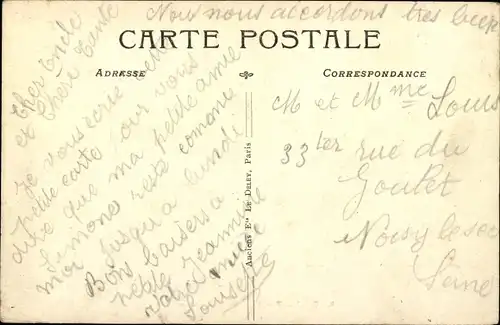 Nous nous accordons très bien
CARTE POSTALE
ADRESSE
CORRESPONDANCE
Cher Oncle
et Chère Tante
Je vous écris cette
petite carte pour vous
dire que ma petite amie
Simone reste comme
moi jusqu'a lundi
Bons baisers a
petite Jeannine
Votre nièce
Louisette
Anciens Ets Le Deley, Paris
M et Mme Louis
33 ter rue du
Goulet
Noisy le sec
Seine